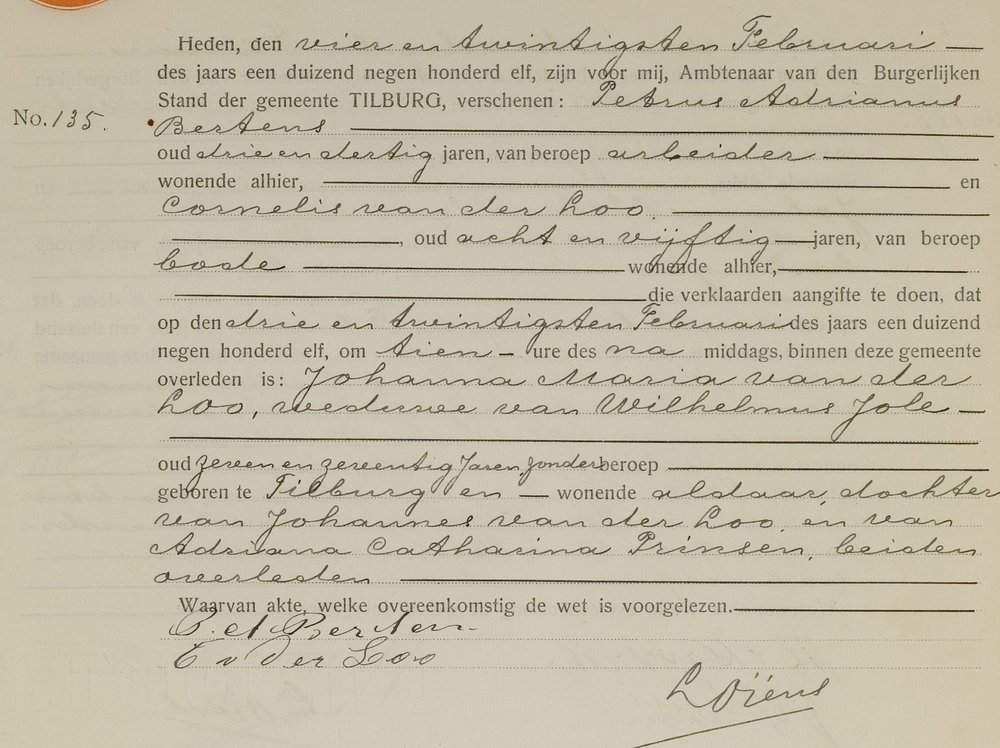 Heden, den vier en twintigsten Februari —
des jaars een duizend negen honderd elf, zijn voor mij, Ambtenaar van den Burgerlijken
Stand der gemeente TILBURG, verschenen: Petrus Adrianus
No. 135.
Bertens
oud drie en dertig jaren, van beroep arbeider
wonende alhier, en
Cornelis van der Loo
, oud acht en vijftig jaren, van beroep
bode wonende alhier,
die verklaarden aangifte te doen, dat
op den drie en twintigsten Februari des jaars een duizend
negen honderd elf, om tien — ure des na middags, binnen deze gemeente
overleden is: Johanna Maria van der
Loo, weduwe van Wilhelmus Jole —
oud zeven en zeventig Jaren, zonder beroep
geboren te Tilburg en — wonende aldaar, dochter
van Johannes van der Loo, en van
Adriana Catharina Prinsen, beiden
overleden
Waarvan akte, welke overeenkomstig de wet is voorgelezen.
P. A Bertens
C v der Loo